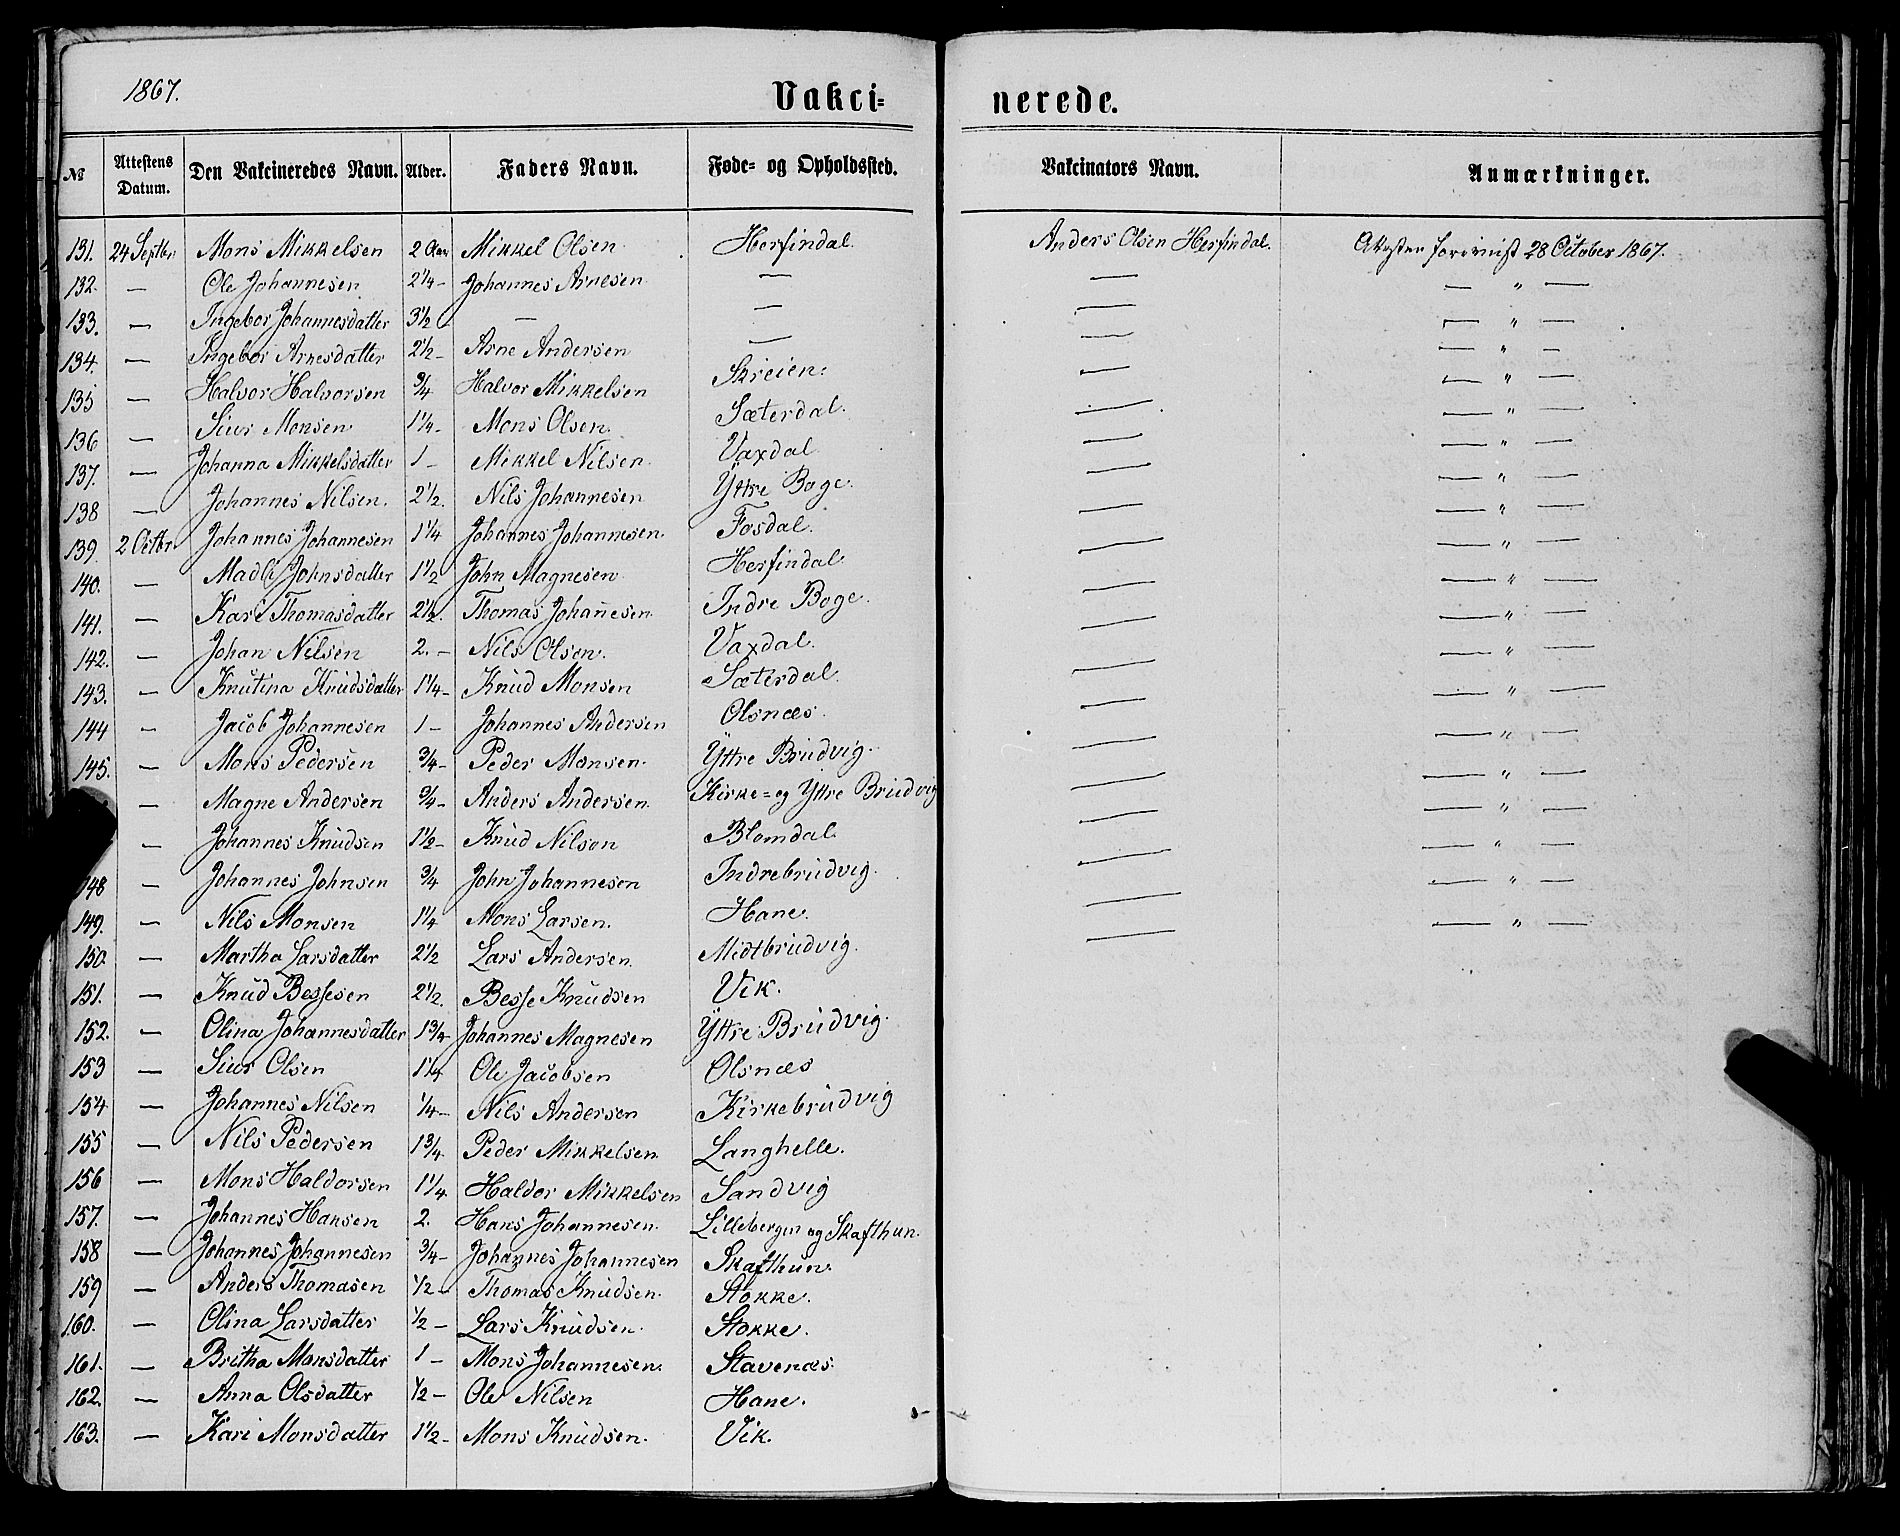 1867.
Vakci= nerede.
№ Attestens Datum. Den Vakcineredes Navn. Alder. Faders Navn. Føde= og Opholdssted. Vakcinators Navn. Anmærkninger.
131. 24 Septbr Mons Mikkelsen 2 Aar Mikkel Olsen Herfindal. Anders Olsen Herfindal. 28 October 1867.
132. — Ole Johannesen 2 1/4 — Johannes Arnesen — — — " —
133. — Ingebor Johannesdatter 3 1/2 — — — — " —
134. — Ingebor Arnesdatter 2 1/2 — Arne Andersen — — — " —
135 — Halvor Halvorsen 3/4 Halvor Mikkelsen Skreien. — — " —
136 — Siur Monsen 1 1/4 — Mons Olsen. Sæterdal. — — " —
137. — Johanna Mikkelsdatter 1 — Mikkel Nilsen. Vaxdal — — " —
138 — Johannes Nilsen. 2 1/2. Nils Johannesen Yttre Boge. — — " —
139. 2 Octbr Johannes Johannesen 1 1/4 Johannes Johannesen. Fosdal. — — " —
140. — Madli Johnsdatter 1 1/2 John Magnesen Herfindal — — " —
141. — Kari Thomasdatter 2 1/2. Thomas Johannesen. Indre Boge. — — " —
142. — Johan Nilsen 2. — Nils Olsen. Vaxdal. — — " —
143. — Knutina Knudsdatter 1 1/4 — Knud Monsen Sæterdal. — — " —
144 — Jacob Johannesen 1 — Johannes Andersen Olsnæs. — — " —
145. — Mons Pedersen 3/4 — Peder Monsen. Yttre Brudvig. — — " —
— Magne Andersen 3/4 — Anders Andersen. Kirke= og Yttre Brudvig — — " —
— Johannes Knudsen 1 1/2 — Knud Nilsen Blomdal. — — " —
148 — Johannes Johnsen 3/4 John Johannesen Indrebrudvig. — — " —
149. — Nils Monsen 1 1/4 Mons Larsen. Hane. — — " —
150. — Martha Larsdatter 2 1/2 Lars Andersen. Midtbrudvig. —
151. — Knud Bessesen 2 1/2. Besse Knudsen Vik.
152. — Olina Johannesdatter 1 3/4 Johannes Magnesen Yttre Brudvig.
153 — Siur Olsen 1 1/4 Ole Jacobsen Olsnæs
154 — Johannes Nilsen 1/4 — Nils Andersen Kirkebrudvig
155 — Nils Pedersen 1 3/4. Peder Mikkelsen. Langhelle.
156 — Mons Haldorsen 1 1/4 Haldor Mikkelsen Sandvig
157. — Johannes Hansen 2. Hans Johannesen. Lillebergen og Skafthun.
158 — Johannes Johannesen 3/4 — Johannes Johannesen Skafthun.
159 — Anders Thomasen 1/2 — Thomas Knudsen. Stokke.
160. — Olina Larsdatter 1/2 — Lars Knudsen. Stokke.
161. — Britha Monsdatter 1 — Mons Johannesen. Stavenæs.
162. — Anna Olsdatter 1/2 — Ole Nilsen Hane.
163. — Kari Monsdatter 1 1/2 — Mons Knudsen. Vik.